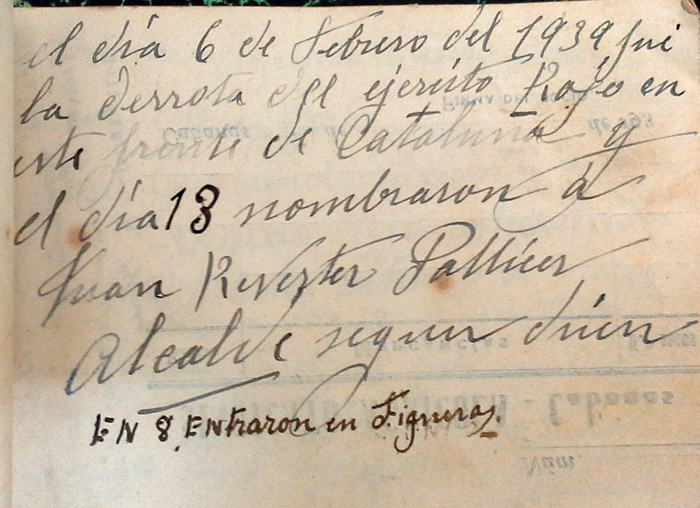 el día 6 de Febrero del 1939 fui
la derrota del ejercito Rojo en
este frente de Cataluña y
el día 13 nombraron a
Juan Reverter Pallicer
Alcalde segun dicen
EN 8 ENtraron en Figueras.
Cabanas
Cabanas
Núm.